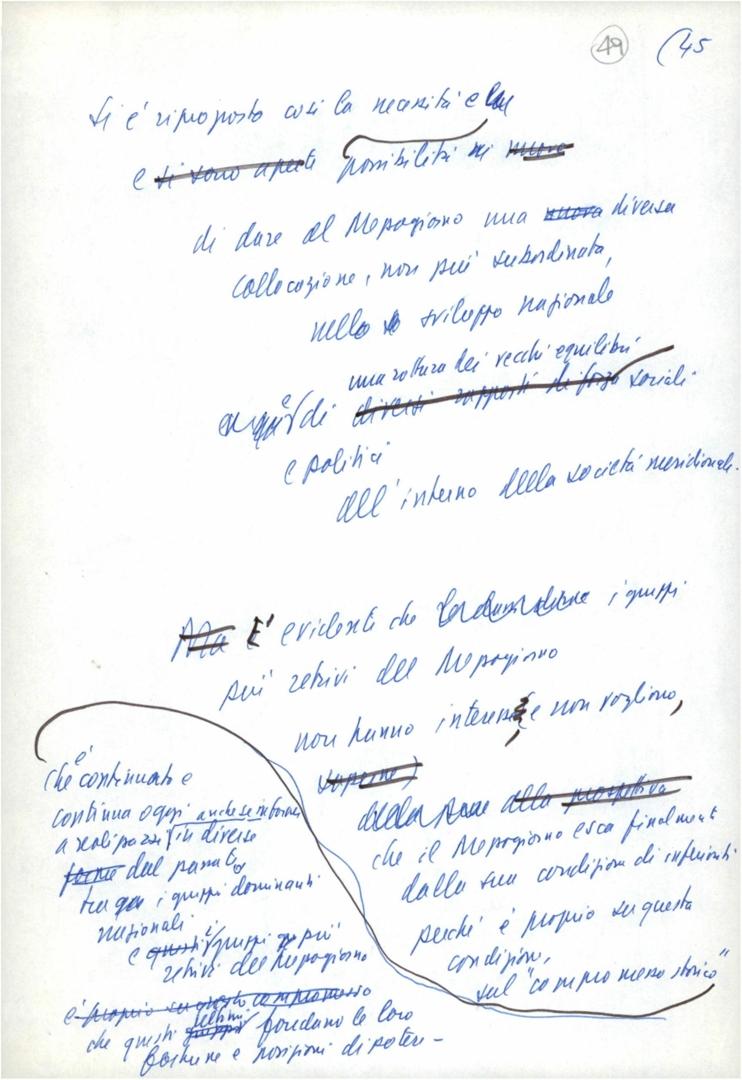 49 (45
Si è riproposto così la necessità e la
e si sono aperte possibilità di nuove
di dare al Mezzogiorno una nuova diversa
collocazione, non più subordinata,
nello sviluppo nazionale
una rottura dei vecchi equilibri
e di diversi rapporti di forza sociali
e politici
all'interno della società meridionale.
Ma E' evidente che i gruppi
più retrivi del Mezzogiorno
non hanno interesse e non vogliono,
sapere)
alla prospettiva
che il Mezzogiorno esca finalmente
dalla sua condizione di inferiorità
perché è proprio su questa
condizione,
sul "compromesso storico"
che è continuato e
continua oggi anche se in forme
a realizzarsi in diverse
forme dal passato
tra i gruppi dominanti
nazionali
e questi gruppi più
retrivi del Mezzogiorno
è proprio su questo compromesso
che questi ultimi gruppi fondano le loro
fortune e posizioni di potere -